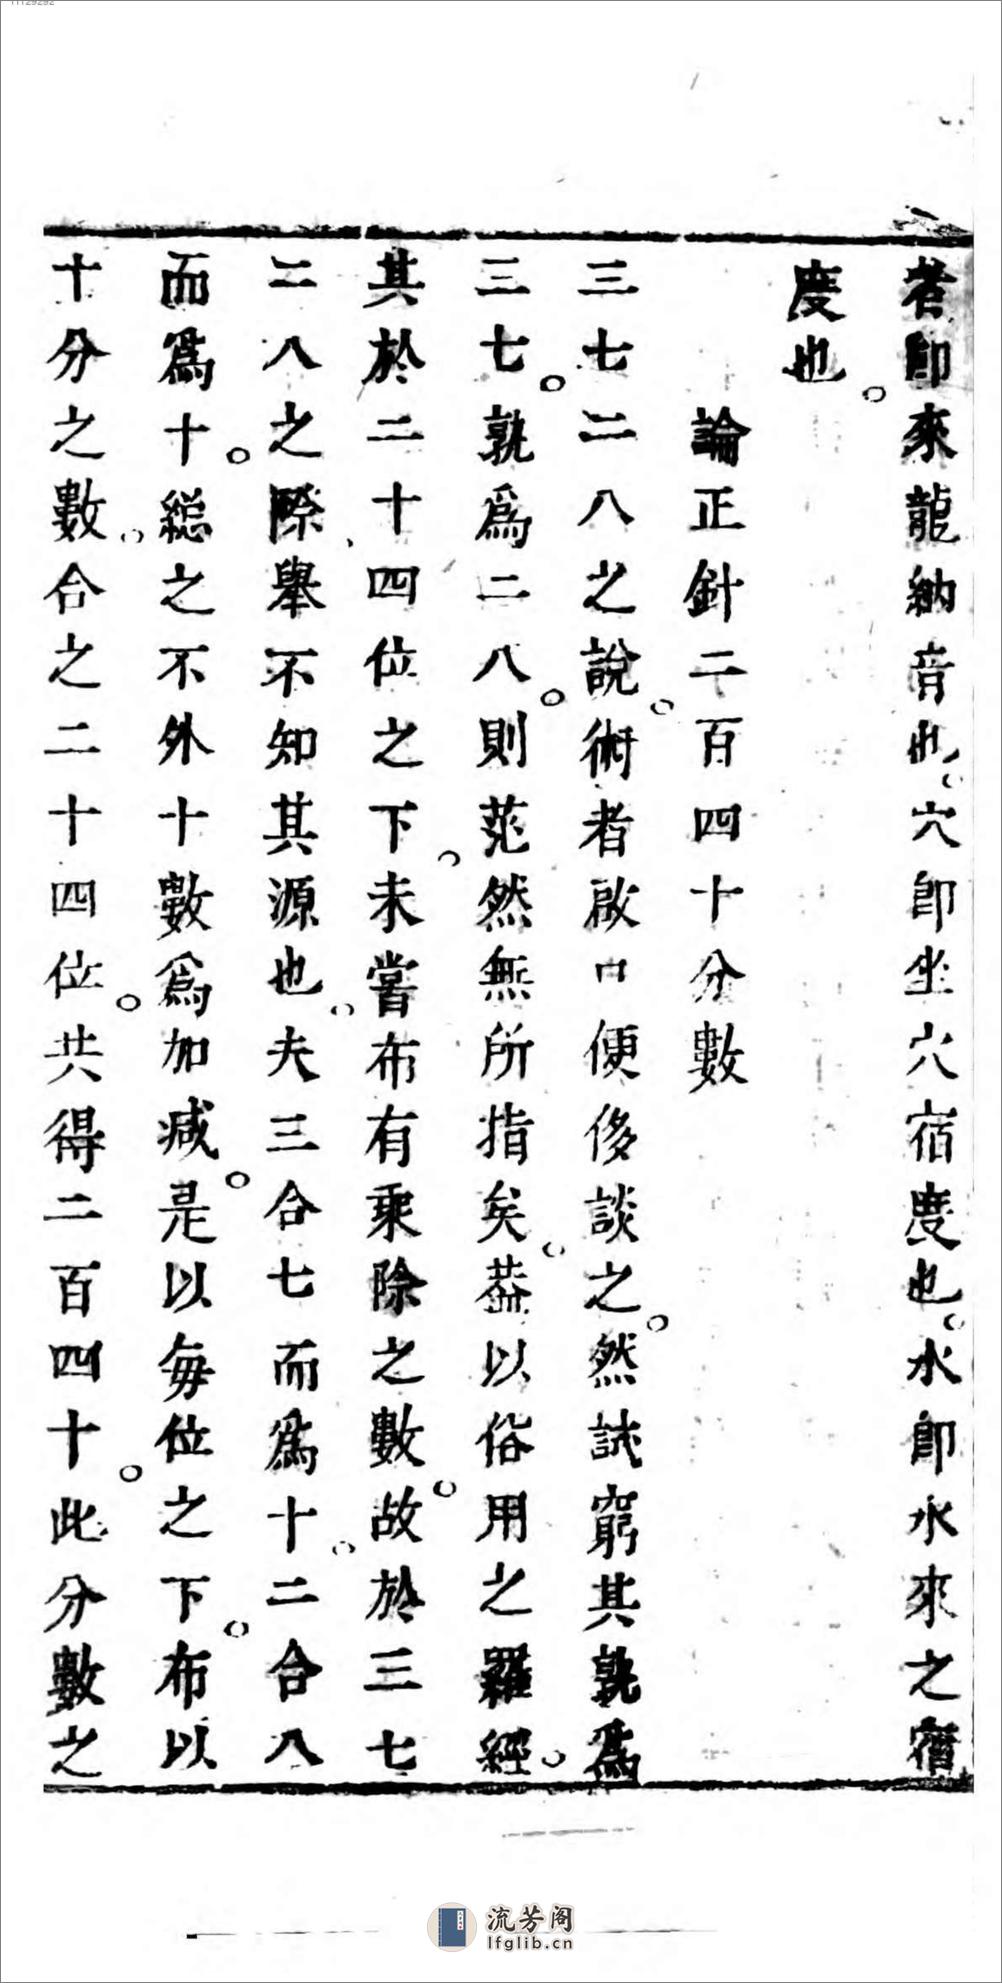 者即來龍納音也。穴即坐穴宿度也。水即水來之宿
度也。
論正針二百四十分數
三七二八之說。術者啟口便侈談之。然試窮其孰爲
三七。孰爲二八。則茫然無所指矣。葢以俗用之羅經。
其於二十四位之下。未嘗布有乘除之數。故於三七
二八之際、舉不知其源也。夫三合七而爲十。二合八
而爲十。総之不外十數爲加减。是以每位之下。布以
十分之數。合之二十四位。共得二百四十。此分數之
流芳阁
lfglib.cn
11129292